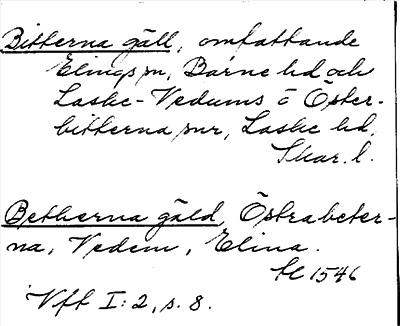 Bitterna gäll, omfattande
Elings sn, Barne hd och
Laske-Vedums o Öster-
bitterna snr, Laske hd,
Skar. l.
Betherna gäld, Östrabeter-
na, Vedem, Elina.
1546
Vft I:2, s. 8.